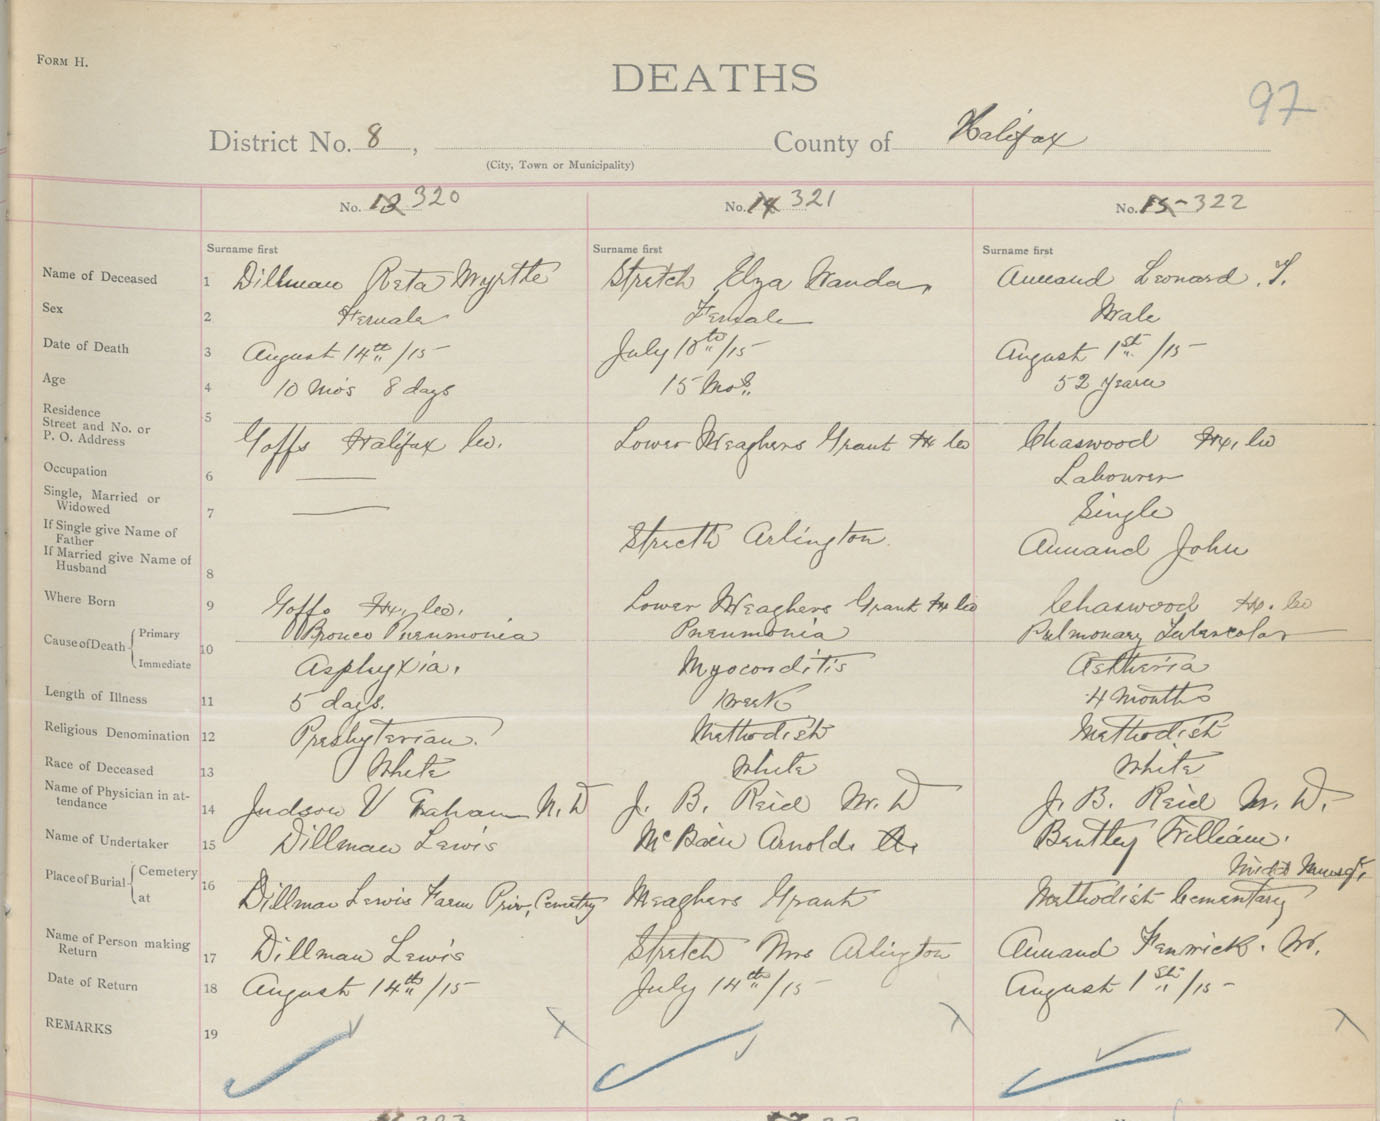 FORM H.
DEATHS
97
District No. 8, County of Halifax
(City, Town or Municipality)
No. 13 320 No. 14 321 No. 15 - 322
Surname first Surname first Surname first
Name of Deceased 1 Dillman Reta Myrtle Stretch Elza Wanda, Annand Leonard. T.
Sex 2 Female Female Male
Date of Death 3 August 14th /15 July 10th /15 August 1st /15
Age 4 10 Mo's 8 days 15 Mos. 52 years
Residence
Street and No. or
P. O. Address
5 Goffs Halifax Co. Lower Meaghers Grant Hx Co Chaswood Hx, Co
Occupation 6 —— Labourer
Single, Married or
Widowed
7 —— Single
If Single give Name of
Father
Strecth Arlington Annand John
If Married give Name of
Husband
8
Where Born 9 Goffs Hx, Co. Lower Meaghers Grant Hx Co Chaswood Hx. Co
Cause of Death Primary Bronco Pneumonia Pneumonia Pulmonary Tubercolar
10
Immediate Asphyxia. Myocorditis Asthenia
Length of Illness 11 5 days. week 4 months
Religious Denomination 12 Presbyterian. Methodist Methodist
Race of Deceased 13 White White White
Name of Physician in at-
tendance
14 Judson V Graham M. D J. B. Reid M. D J. B. Reid M. D.
Name of Undertaker 15 Dillman Lewis McBain Arnold Bentley William.
Place of Burial Cemetery
at
16 Dillman Lewis Farm Priv, Cemetry Meaghers Grant Methodist Cementary
Name of Person making
Return
17 Dillman Lewis Stretch Mrs Arlington Annand Fenwick. W.
Date of Return 18 August 14th /15 July 14th /15 August 1st /15 -
REMARKS 19